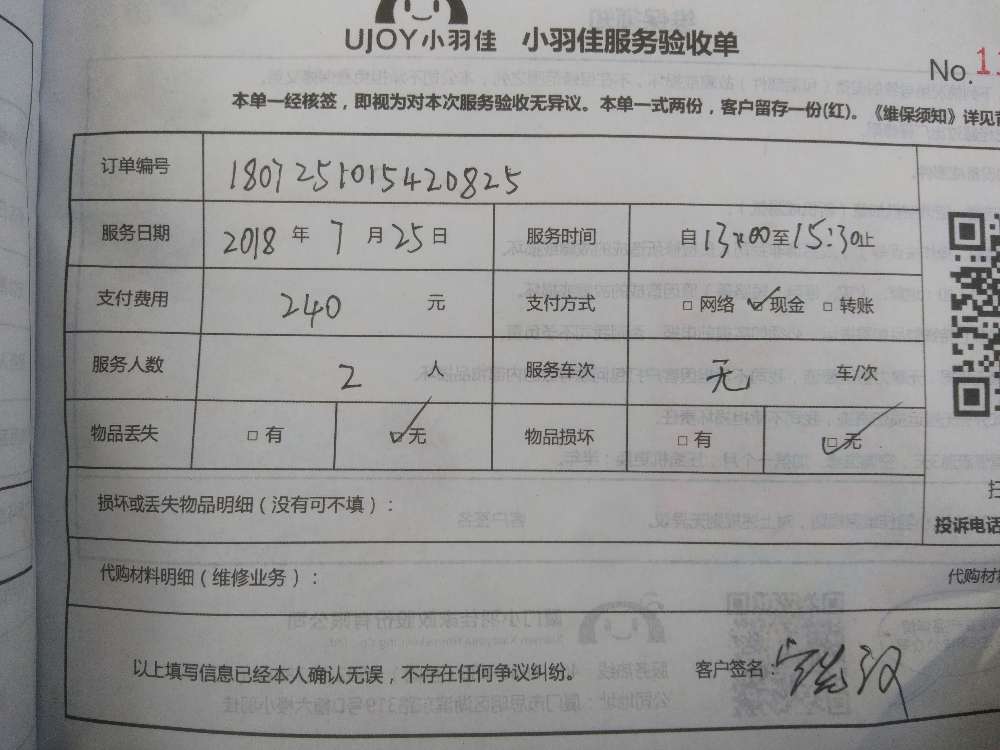 UJOY小羽佳 小羽佳服务验收单
No.1
本单一经核签，即视为对本次服务验收无异议。本单一式两份，客户留存一份(红)。《维保须知》详见背
订单编号 1807251015420825
服务日期 2018 年 7 月 25 日 服务时间 自 13:00 至 15:30 止
支付费用 240 元 支付方式 □ 网络 ☑ 现金 □ 转账
服务人数 2 人 服务车次 无 车/次
物品丢失 □ 有 ☑ 无 物品损坏 □ 有 ☑ 无
损坏或丢失物品明细（没有可不填）：
扫
投诉电话
代购材料明细（维修业务）： 代购材料
以上填写信息已经本人确认无误，不存在任何争议纠纷。 客户签名：